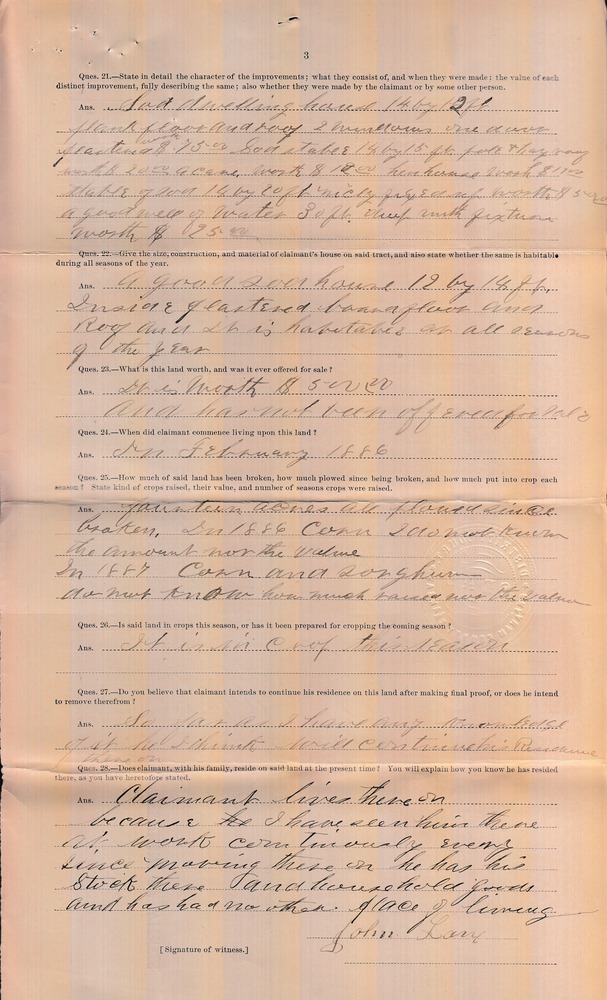 3
Ques. 21.—State in detail the character of the improvements; what they consist of, and when they were made; the value of each
distinct improvement, fully describing the same; also whether they were made by the claimant or by some other person.
Ans. Sod dwelling house 14 by 12 ft
plank floor and roof 2 windows one door
plastered $75.00 Sod stable 14 by 15 ft pole & hay
worth $20.00 worth $10.00 hen house worth $
stable of sod 14 by 20 ft nicely fixed up worth $
a good well of water 30 ft deep with fixtures
worth $ 25.00
Ques. 22.—Give the size, construction, and material of claimant's house on said tract, and also state whether the same is habitable
during all seasons of the year.
Ans. A good sod house 12 by 14 ft.
Inside plastered board floor and
Roof and It is habitable at all seasons
of the year
Ques. 23.—What is this land worth, and was it ever offered for sale?
Ans. It is Worth $ 500.00
and has not been offered for sale
Ques. 24.—When did claimant commence living upon this land?
Ans. In February 1886
Ques. 25.—How much of said land has been broken, how much plowed since being broken, and how much put into crop each
season? State kind of crops raised, their value, and number of seasons crops were raised.
Ans. fourteen acres all plowed since
broken. In 1886 Corn I do not know
the amount nor the value
In 1887 Corn and sorghum
do not know how much raised nor the value
Ques. 26.—Is said land in crops this season, or has it been prepared for cropping the coming season?
Ans. It is in crop this season
Ques. 27.—Do you believe that claimant intends to continue his residence on this land after making final proof, or does he intend
to remove therefrom?
Ans. So far as I have any knowledge
of it he I think will continue his Residence
thereon
Ques. 28.—Does claimant, with his family, reside on said land at the present time? You will explain how you know he has resided
there, as you have heretofore stated.
Ans. Claimant lives thereon
because I have seen him there
at work continuously every
since moving there on he has his
Stock there and household goods
and has had no other place of living
John
[Signature of witness.]